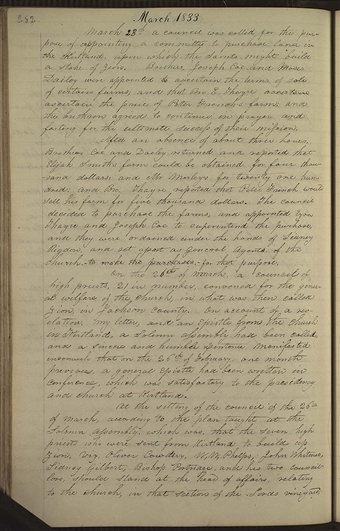 282.
March 1833
March 23d a council was called for the pur-
pose of appointing a committy to purchase lands in
the Kirtland, upon which the saints might build
a Stake of Zion. Brother Joseph Coe and Moses
Dailey were appointed to ascertain the terms of sale
of certain farms; and that Bro. E. Thayre ascertain
ascertain the price of Peter French's farm, and
the brethren agreed to continue in prayer and
fasting for the ultimate success of their mission.
After an absence of about three hours,
Brothers Coe and Dailey returned and reported that
Elijah Smiths farm could be obtained for four thou-
sand dollars; and Mr Morleys for twenty one hun-
dred; and Bro. Thayre reported that Peter French would
sell his farm for five thousand dollars. The council
decided to purchase the farms, and appointed Ezra
Thayre and Joseph Coe to superintend the purchase,
and they were ordained under the hands of Sidney
Rigdon, and set apart as General Agents of the
Church to make the purchases for that purpose.
On the 26th of March, a council of
high priests, 21 in number, convened for the gener-
al welfare of the church, in what was then called
Zion, in Jackson County. On account of a rev-
elation, my letter, and an Epistle from the Church
in Kirtland, a solemn assembly had been called
and a sincere and humble repentance manifested
inasmuch that on the 26th of February, one month
previous, a general Epistle had been written in
conference, which was satisfactory to the presidency
and church at Kirtland.
At the sitting of the council of the 26th
of March, according to the plan taught at the
solemn assembly, which was, that the seven high
priests who were sent from Kirtland to build up
Zion, viz. Oliver Cowdery, W. W. Phelps, John Whitmer,
Sidney Gilbert, Bishop Partridge, and his two council-
lors, should stand at the head of affairs, relating
to the church, in that section of the Lords vineyard